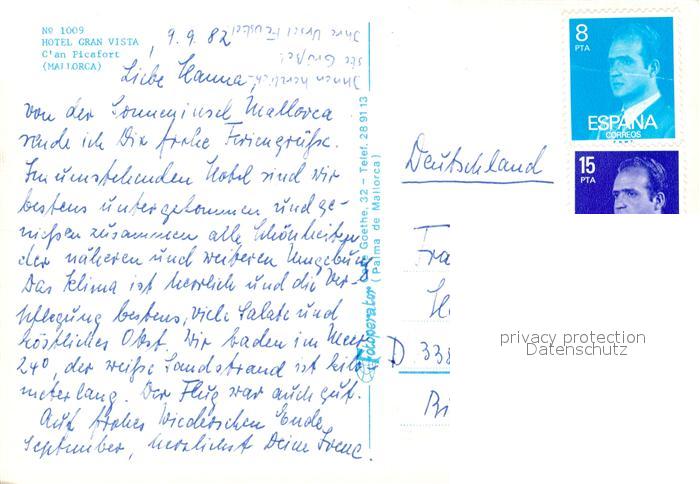 Nº 1009
HOTEL GRAN VISTA
C'an Picafort
(MALLORCA)
, 9.9.82
Liebe Hanna,
von der Sonneninsel Mallorca
sende ich Dir frohe Feriengrüße.
Im umstehenden Hotel sind wir
bestens untergekommen und ge-
nießen zusammen alle Schönheiten
der näheren und weiteren Umgebung.
Das Klima ist herrlich und die Ver-
pflegung bestens, viele Salate und
köstliches Obst. Wir baden im Meer
24°, der weiße Sandstrand ist kilo-
meterlang. Der Flug war auch gut.
Auf frohes Wiedersehen Ende
September, herzlichst Deine Irene.
Ihnen herzlich-
ste Grüße!
Ihre Ursel
Fotoperator Goethe, 32 - Telef. 28 91 13
(Palma de Mallorca)
8
PTA
ESPAÑA
CORREOS
15
PTA
Deutschland
Fra
D 338
privacy protection
Datenschutz